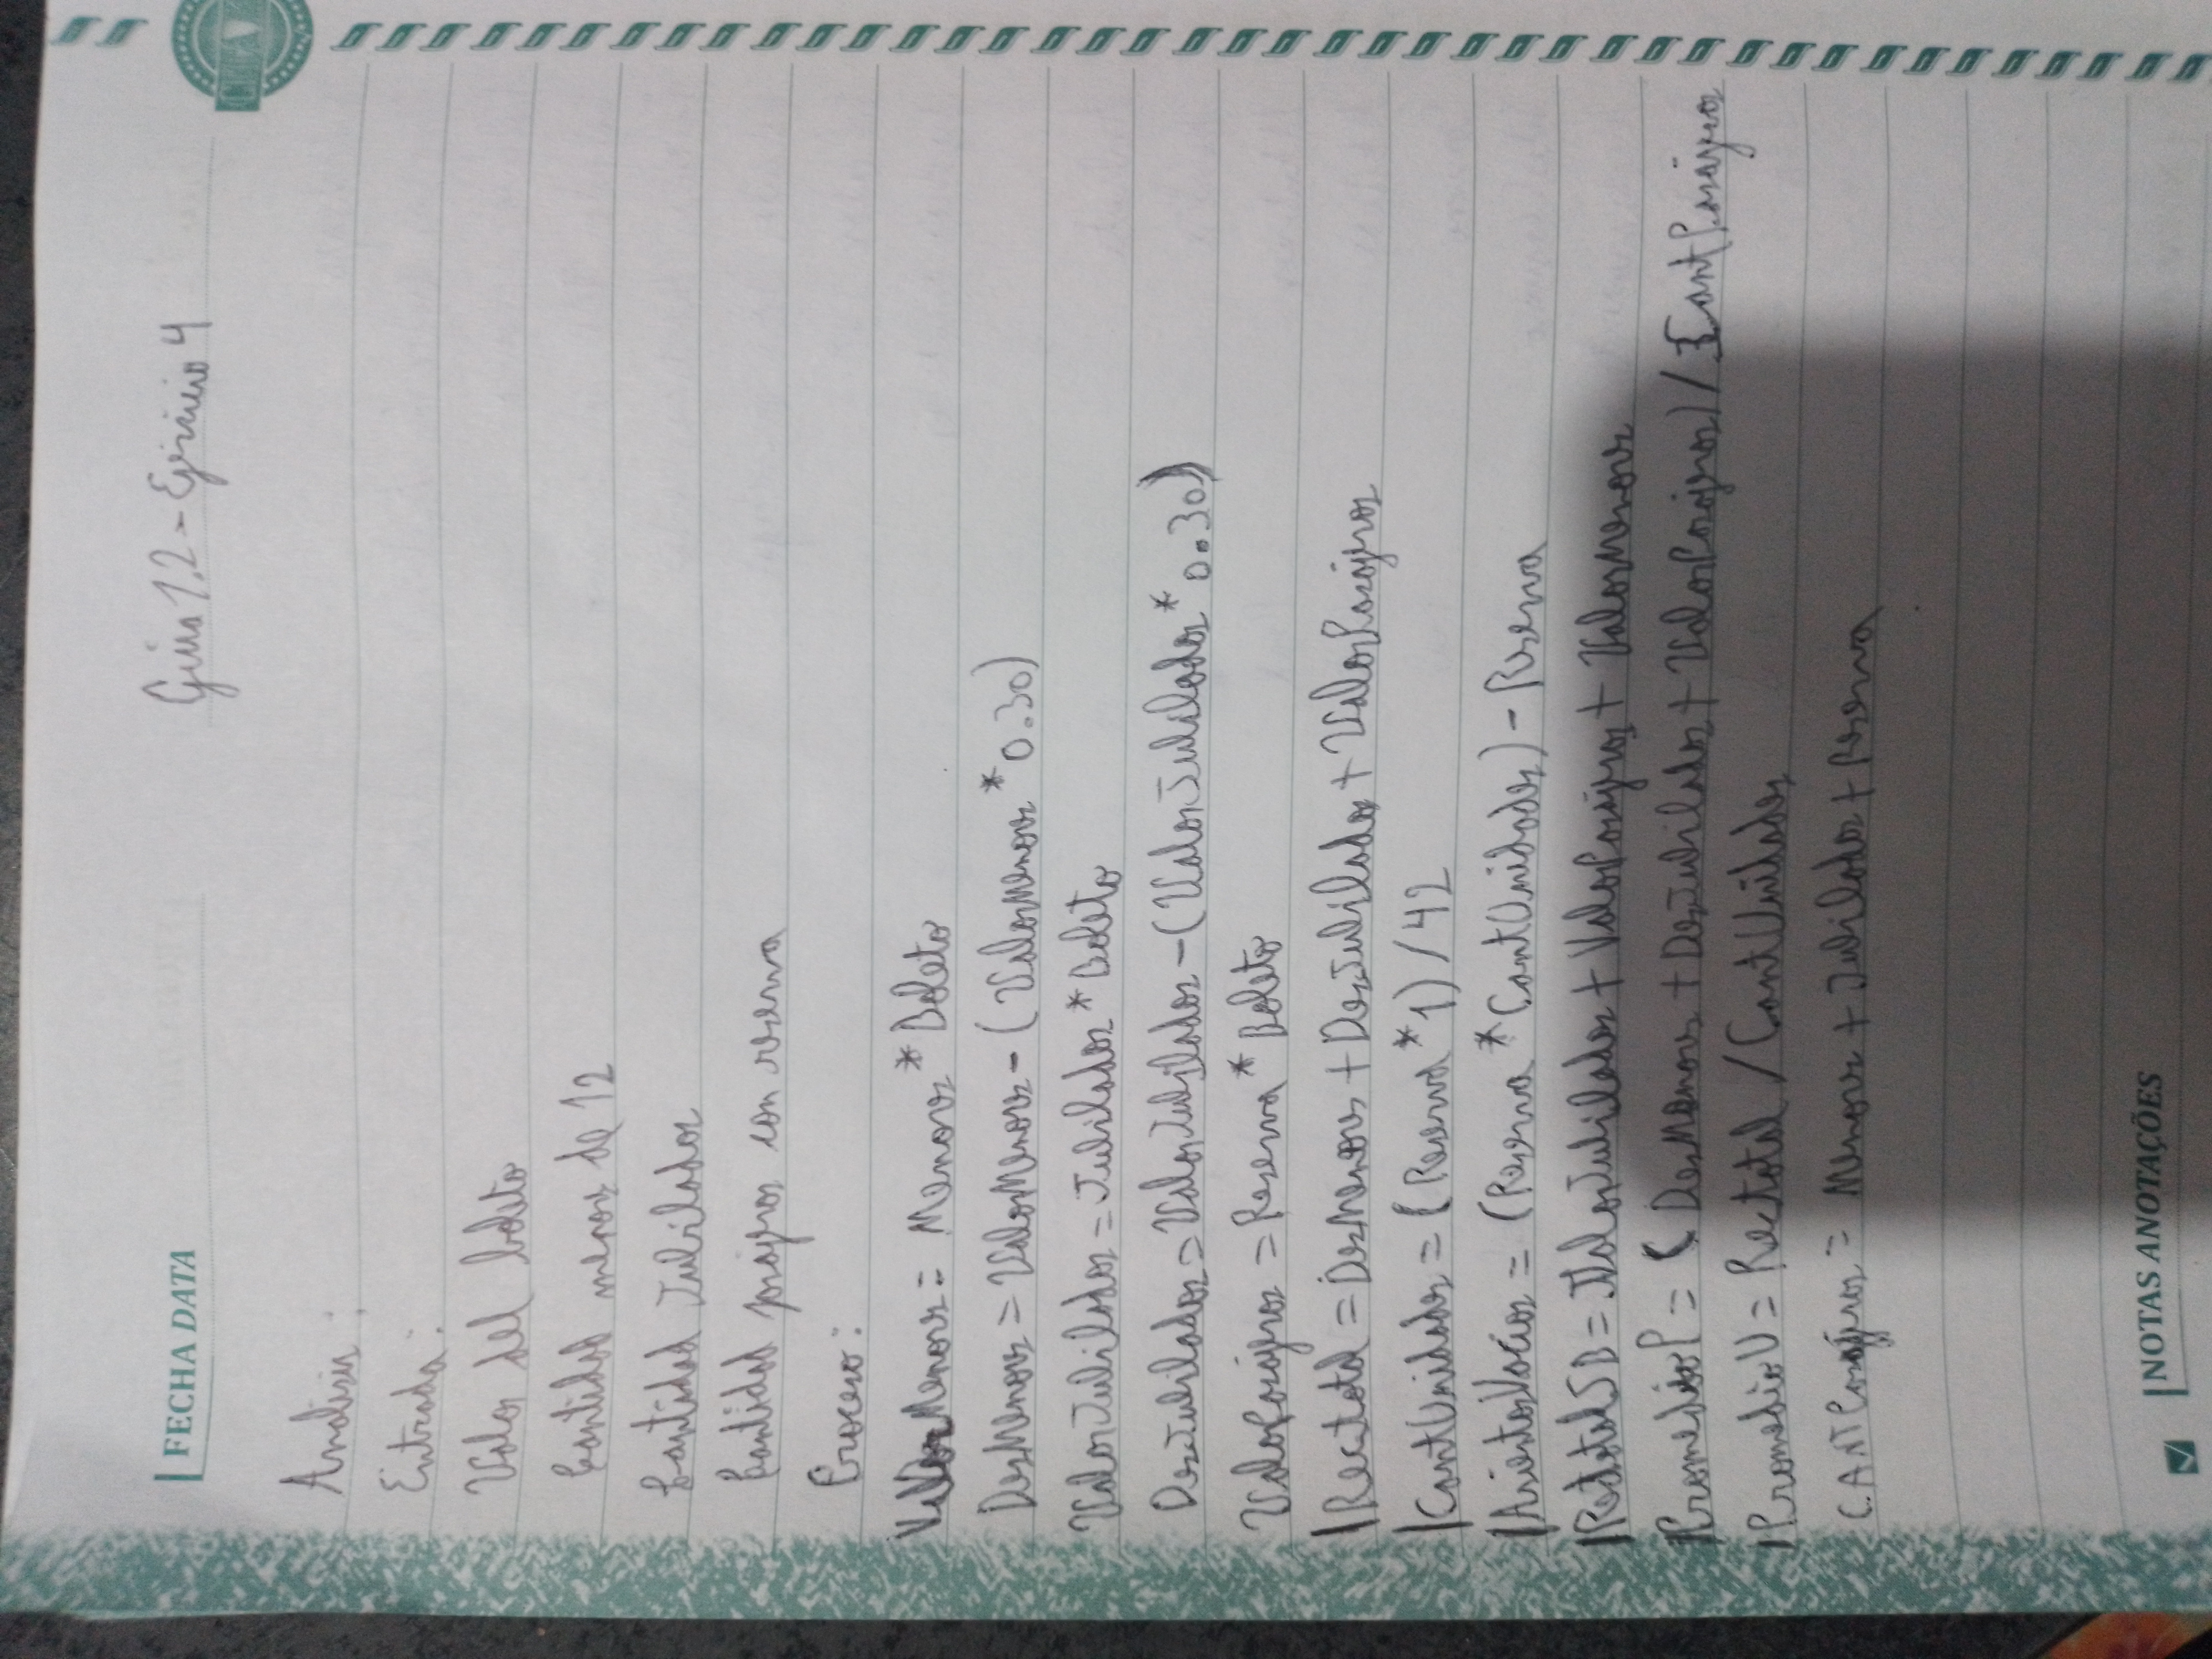 FECHA DATA
Guia 1.2 - Ejercicio 4
Analisis:
Entrada:
Valor del boleto
Cantidad menores de 12
Cantidad Jubilados
Cantidad pasajeros con reserva
Proceso:
ValorMenores = Menores * Boleto
DesMenores = ValorMenores - (ValorMenores * 0.30)
ValorJubilados = Jubilados * Boleto
DesJubilados = ValorJubilados - (ValorJubilados * 0.30)
ValorPasajeros = Reserva * Boleto
Rectotal = DesMenores + DesJubilados + ValorPasajeros
CantUnidades = (Reserva * 1) / 42
AsientosVacios = (Reserva * CantUnidades) - Reserva
RectotalSB = ValorJubilados + ValorPasajeros + ValorMenores
PromedioP = (DesMenores + DesJubilados + ValorPasajeros) / CantPasajeros
PromedioU = Rectotal / CantUnidades
CANTPasajeros = Menores + Jubilados + Reserva
NOTAS ANOTAÇÕES